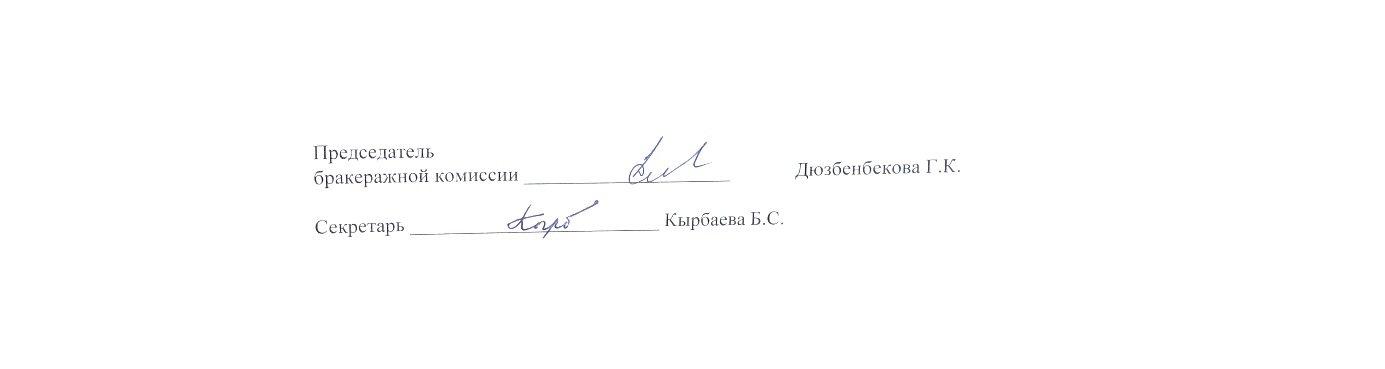 Председатель
бракеражной комиссии Дюзбенбекова Г.К.
Секретарь Кырбаева Б.С.